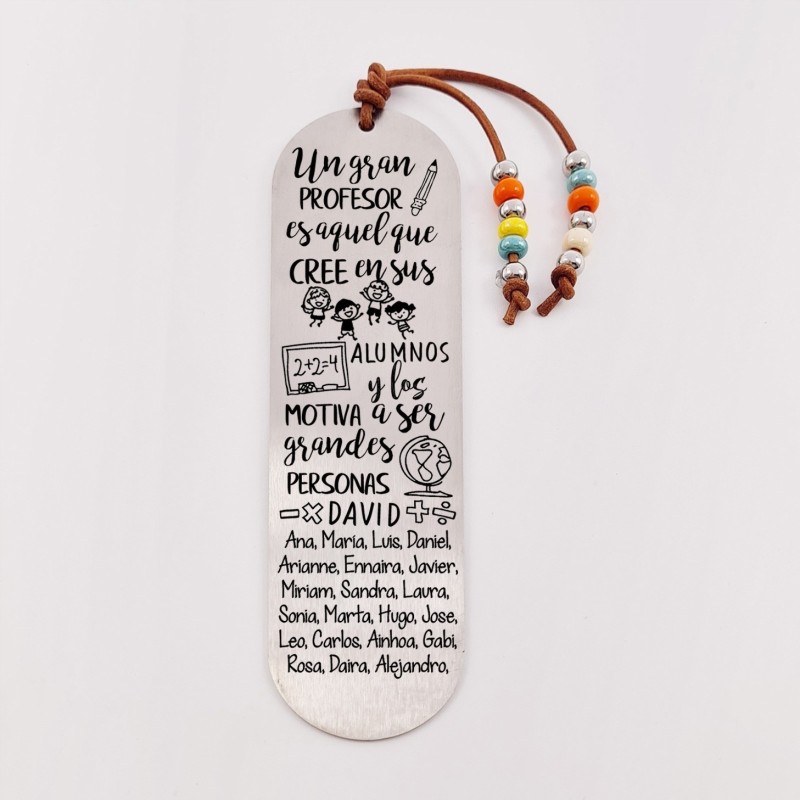 Un gran
PROFESOR
es aquel que
CREE en sus
2+2=4
ALUMNOS
y los
MOTIVA a ser
grandes
PERSONAS
−×DAVID+÷
Ana, María, Luis, Daniel,
Arianne, Ennaira, Javier,
Miriam, Sandra, Laura,
Sonia, Marta, Hugo, Jose,
Leo, Carlos, Ainhoa, Gabi,
Rosa, Daira, Alejandro,